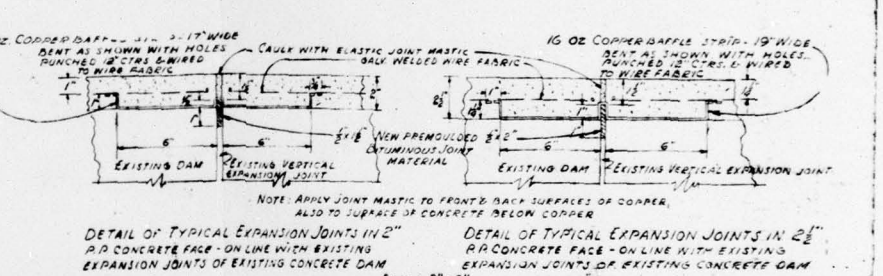 OZ. COPPER BAFFLE STRIP - 17" WIDE
BENT AS SHOWN WITH HOLES
PUNCHED 12" CTRS. & WIRED
TO WIRE FABRIC
CAULK WITH ELASTIC JOINT MASTIC
GALV. WELDED WIRE FABRIC
16 OZ COPPER BAFFLE STRIP - 19" WIDE
BENT AS SHOWN WITH HOLES
PUNCHED 12" CTRS. & WIRED
TO WIRE FABRIC
1"
2"
2½"
1"
1½"
6"
6"
½" x 1½"
NEW PREMOULDED
½" x 2"
BITUMINOUS JOINT
MATERIAL
6"
6"
EXISTING DAM
EXISTING VERTICAL
EXPANSION JOINT
EXISTING DAM
EXISTING VERTICAL EXPANSION JOINT
NOTE: APPLY JOINT MASTIC TO FRONT & BACK SURFACES OF COPPER,
ALSO TO SURFACE OF CONCRETE BELOW COPPER
DETAIL OF TYPICAL EXPANSION JOINTS IN 2"
P.P. CONCRETE FACE - ON LINE WITH EXISTING
EXPANSION JOINTS OF EXISTING CONCRETE DAM
DETAIL OF TYPICAL EXPANSION JOINTS IN 2½"
P.P. CONCRETE FACE - ON LINE WITH EXISTING
EXPANSION JOINTS OF EXISTING CONCRETE DAM